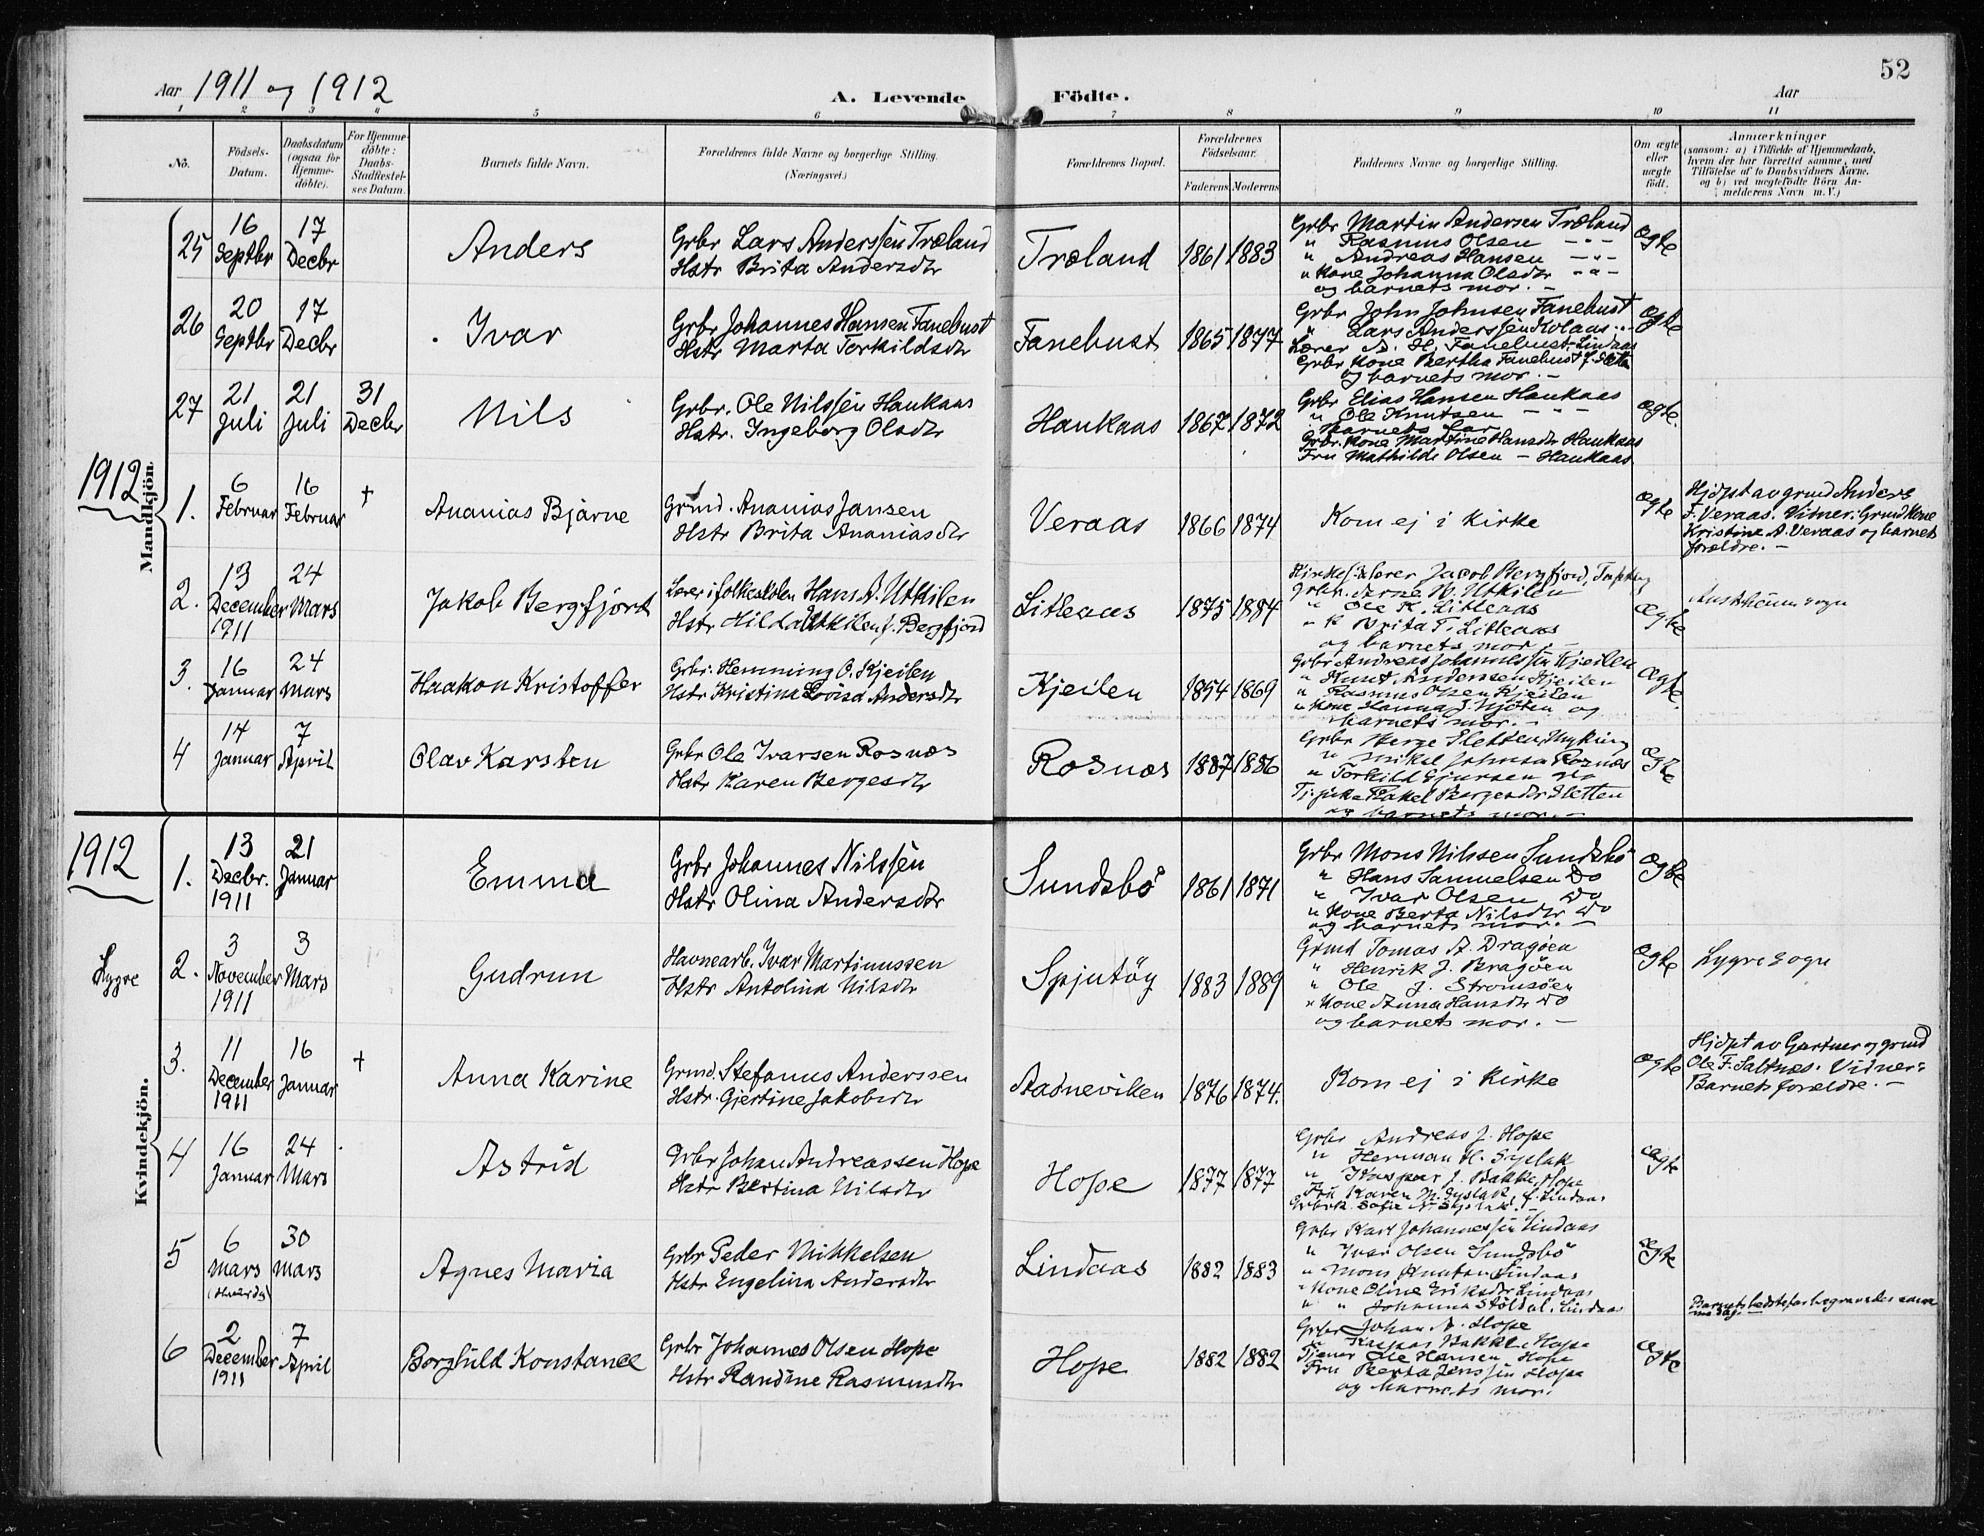 52
Aar 1911 og 1912
A. Levende Födte.
Aar
1 2 3 4 5 6 7 8 9 10 11
No.
Födsels-
Datum.
Daabsdatum
(ogsaa för
Hjemme-
döbte).
For Hjemme-
döbte:
Daabs-
Stadfæstel-
ses Datum.
Barnets fulde Navn.
Forældrenes fulde Navne og borgerlige Stilling.
(Næringsvei.)
Forældrenes Bopæl.
Forældrenes
Födselsaar.
Faderens Moderens
Faddernes Navne og borgerlige Stilling.
Om ægte
eller
uægte
födt.
Anmærkninger
(saasom: a) i Tilfælde af Hjemmedaab,
hvem der har forrettet samme, med
Tilföielse af to Daabsvidners Navne.
og b) ved uægtefödte Börn An-
melderens Navn m. V.)
Mandkjön.
25
16
Septbr
17
Decbr
Anders
Grbr Lars Anderssen Træland
Hstr Brita Andersdtr
Træland
1861 1883
Grbr Martin Andersen Træland
" Rasmus Olsen - " -
" Andreas Hansen - " -
" Kone Johanna Olsdtr - " -
og barnets mor. -
Ægte
26
20
Septbr
17
Decbr
Ivar
Grbr Johannes Hansen Fanebust
Hstr Marta Torkildsdtr
Fanebust
1865 1877
Grbr John Johnsen Fanebust
" Lars Anderssen
Lærer A. H. Fanebust, Lindaas
Grbr Kone Bertha Fanebust
og barnets mor. -
Ægte
27
21
Juli
21
Juli
31
Decbr
Nils
Grbr. Ole Nilssen Haukaas
Hstr. Ingeborg Olsdtr
Haukaas
1867 1872
Grbr Elias Hansen Haukaas
" Ole Knutsen - " -
Barnets far
Grbr. Kone Martine Hansdtr Haukaas
Fru Mathilde Olsen - Haukaas
Ægte.
1912
1.
6
Februar
16
Februar
+
Ananias Bjarne
Grmd. Ananias Jansen
Hstr Brita Ananiasdtr
Veraas
1866 1874
Kom ej i kirke
Ægte
Hjdpt av grmd Anders
F. Veraas. Vidner: Grmd kone
Kristine A. Veraas og barnets
forældre. -
2.
13
December
1911
24
Mars
Jakob Bergfjort
Lærer i folkeskolen Hans A. Utkilen
Hstr Hilda Utkilen f. Bergfjord
Litleaas
1875 1884
lærer Jacob Bergfjord,
Grbr. Utkilen
" Ole K. Litleaas
" K Brita T. Litleaas
og barnets mor. -
Ægte
Austrheim sogn
3.
16
Januar
24
Mars
Haakon Kristoffer
Grbr. Hemming O. Kjeilen
Hstr Kristina Lovisa Andersdtr
Kjeilen
1854 1869
Grbr Andreas Johannessen Kjeilen
" Knut Andersen Kjeilen
" Rasmus Olsen Kjeilen
" Kone Hanna J. og
barnets mor. -
Ægte.
4
14
Januar
7
April
Olav Karsten
Grbr Ole Ivarsen Rosnæs
Hstr Karen Bergesdtr
Rosnæs
1887 1886
Grbr Berge Sletten,
" Mikal Johnsen Rosnæs
" Torkild do
Rakel Bergesdtr Sletten
og barnets mor. -
Ægte
1912
Lygre
Kvindekjön.
1.
13
Decbr.
1911
21
Januar
Emma
Grbr Johannes Nilssen
Hstr Olina Andersdtr
Sundsbö
1861 1871
Grbr Mons Nilssen Sundsbö
" Hans Samuelsen do
" Ivar Olsen do
" Kone Berta Nilsdtr do
og barnets mor. -
Ægte
2.
3
November
1911
3
Mars
Gudrun
Havnearb. Ivar Martinussen
Hstr Antolina Nilsdtr
Spjutöy
1883 1889
Grmd Tomas A. Dragöen
" Henrik J. Dragöen
" Ole J. Strömsöen
" Kone Anna Hansdtr do
og barnets mor. -
Ægte
Lygre sogn
3.
11
December
1911
16
Januar
+
Anna Karine
Grmd. Stefanus Anderssen
Hstr. Gjertine Jakobsdtr
Aadneviken
1876 1874.
Kom ej i kirke
Ægte
Hjdpt av Gartner og grmd
Ole F. Saltnæs. Vidner:
Barnets foreldre. -
4
16
Januar
24
Mars
Astrid
Grbr Johan Andreassen Hope
Hstr Bertina Nilsdtr
Hope
1877 1877
Grbr Andreas J. Hope
" Herman H.
" Kaspar J. Bakke, Hope
Fru Karen M.
Ægte
5
6
Mars
30
Mars
Agnes Maria
Grbr Peder Mikkelsen
Hstr Engelina Andersdtr
Lindaas
1882 1883
Grbr Karl Johannessen Lindaas
" Ivar Olsen Sundsbö
" Mons Knutsen Lindaas
" Kone Oline Eriksdtr Lindaas
" " Johanna Stöldal. Lindaas
Ægte
Barnets bedstefar begravedes samme
dag.
6
2
December
1911
7
April
Borghild Konstance
Grbr Johannes Olsen Hope
Hstr Randine Rasmusdtr
Hope
1882 1882
Grbr Johan A. Hope
" Kaspar Bakke, Hope
Tjener Ole Hansen, Hope
Fru Berta Jenssen Hope
og barnets mor.
Ægte